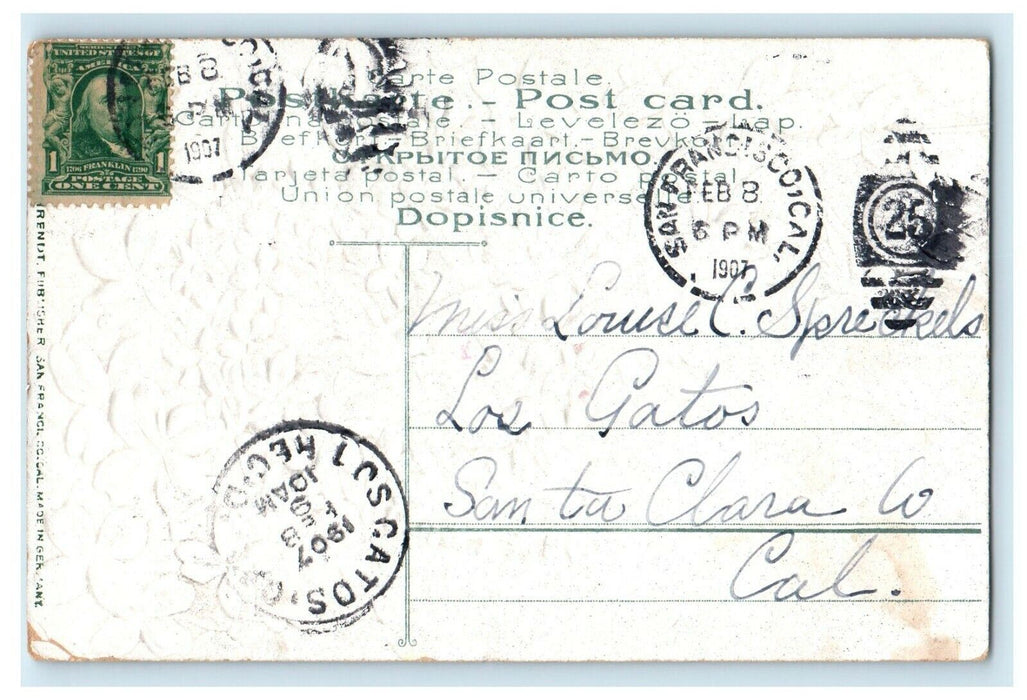 SERIES OF
UNITED STATES OF
AMERICA
1 1706 FRANKLIN 1790 1
POSTAGE
ONE CENT
FEB 8
1907
Carte Postale.
Postkarte. - Post card.
- Levelező - Lap.
Briefkaart. - Brevkort
ОТКРЫТОЕ ПИСЬМО.
Tarjeta postal. - Carto postal.
Union postale universelle.
Dopisnice.
SAN FRANCISCO, CAL.
FEB 8
6 PM
1907
25
Miss Louise C. Spreckels
Los Gatos
Santa Clara Co
Cal.
LOS GATOS, CAL.
REC'D.
10 AM
FEB
1907
PUBLISHER SAN FRANCISCO, CAL. MADE IN GERMANY.